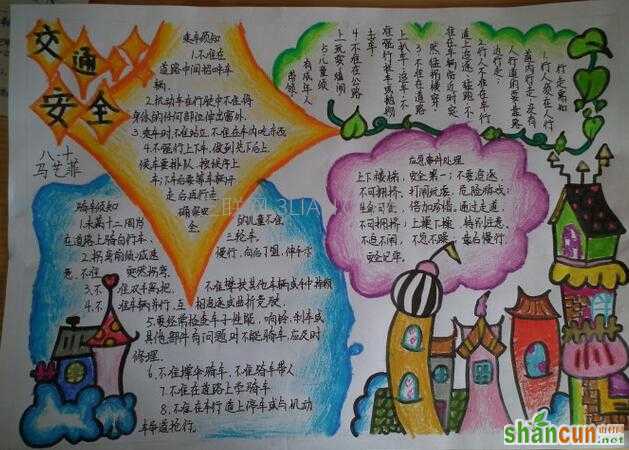 交通
安全
八、十
马艺菲
乘车须知
1.不准在
道路中间招呼车
辆。
2.机动车在行驶中不准将
身体的任何部位伸出窗外。
4.不强行上下车，做到先下后上，
候车要排队，按秩序上
车；下后要等车辆开
走后再行走
确保安
全。
行走须知
1.行人须在人行
道内行走，没有
人行道的要靠路
边行走；
2.行人不准在车行
道上追逐、猛跑，不
准在车辆临近时突
然猛拐横穿；
3.不准在道路
上扒车、追车，不
准强行拦车或抛物
击车。
4.不准在公路
上玩耍、嬉闹
5.儿童须
有成年人
带领。
应急事件处理
上下楼梯，安全第一；不要追逐，
不可拥挤；打闹玩耍，危险游戏；
生命可贵，倍加珍惜。通过走道，
不可拥挤；上操下操，特别注意，
不追不闹，不急不躁，靠右慢行，
安全记牢。
骑车须知
1.未满十二周岁
的儿童不准
在道路上骑自行车、
三轮车。
2.拐弯前须减速
慢行，向后了望，伸手示
意，不准
突然拐弯。
3.不
准双手离把，
不准攀扶其他车辆或手中持物
4.不
准车辆并行、互
相追逐或曲折竞驶。
5.要经常检查车子性能，响铃、刹车或
其他部件有问题时不能骑车，应及时
修理。
6.不准撑伞骑车、不准骑车带人
7.不准在道路上学骑车
8.不准在车行道上停车或与机动
车争道抢行。
shancun
山村网
.net